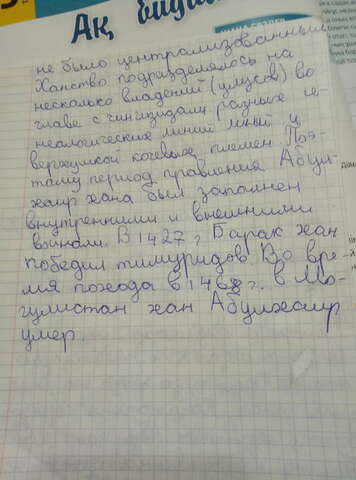 Ақ бидай
не было централизованным.
Ханство подразделялось на
несколько владений (улусов) во
главе с чингизидами разных ге-
неологических линий линий и
верхушкой кочевых племен. Поэ-
тому период правления Абул-
хаир хана был заполнен
внутренними и внешними
войнами. В 1427 г Барак хан
победил тимуридов. Во вре-
мя похода в 1468 г. в Мо-
гулистан хан Абулхаир
умер.